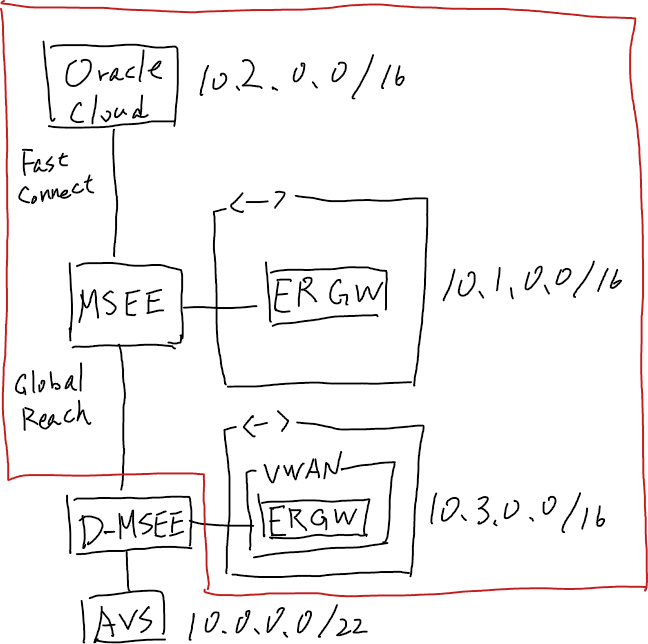 Oracle
Cloud
10.2.0.0/16
Fast
Connect
<->
MSEE
ERGW
10.1.0.0/16
Global
Reach
<->
VWAN
D-MSEE
ERGW
10.3.0.0/16
AVS
10.0.0.0/22